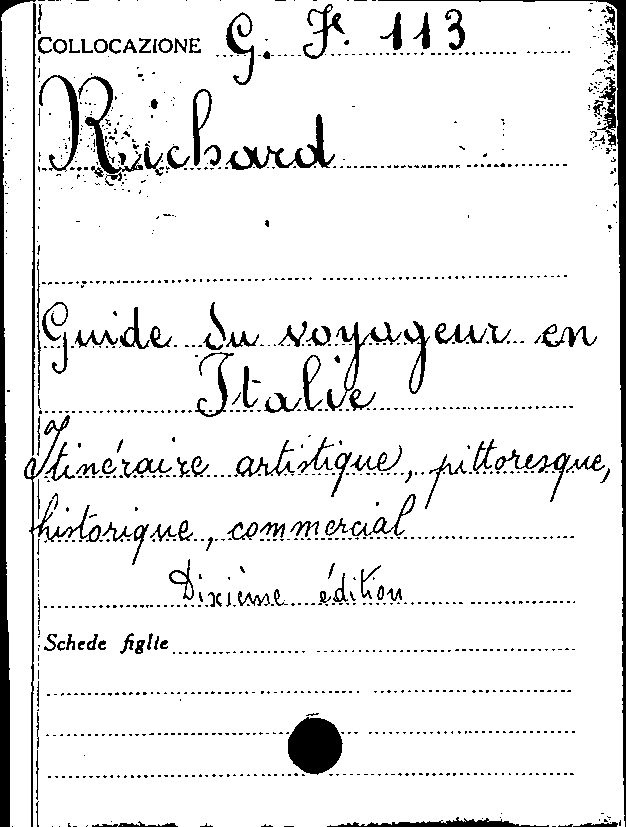 COLLOCAZIONE G. F. 113
Richard
Guide du voyageur en
Italie
Itinéraire artistique, pittoresque,
historique, commercial
Dixième édition
Schede figlie